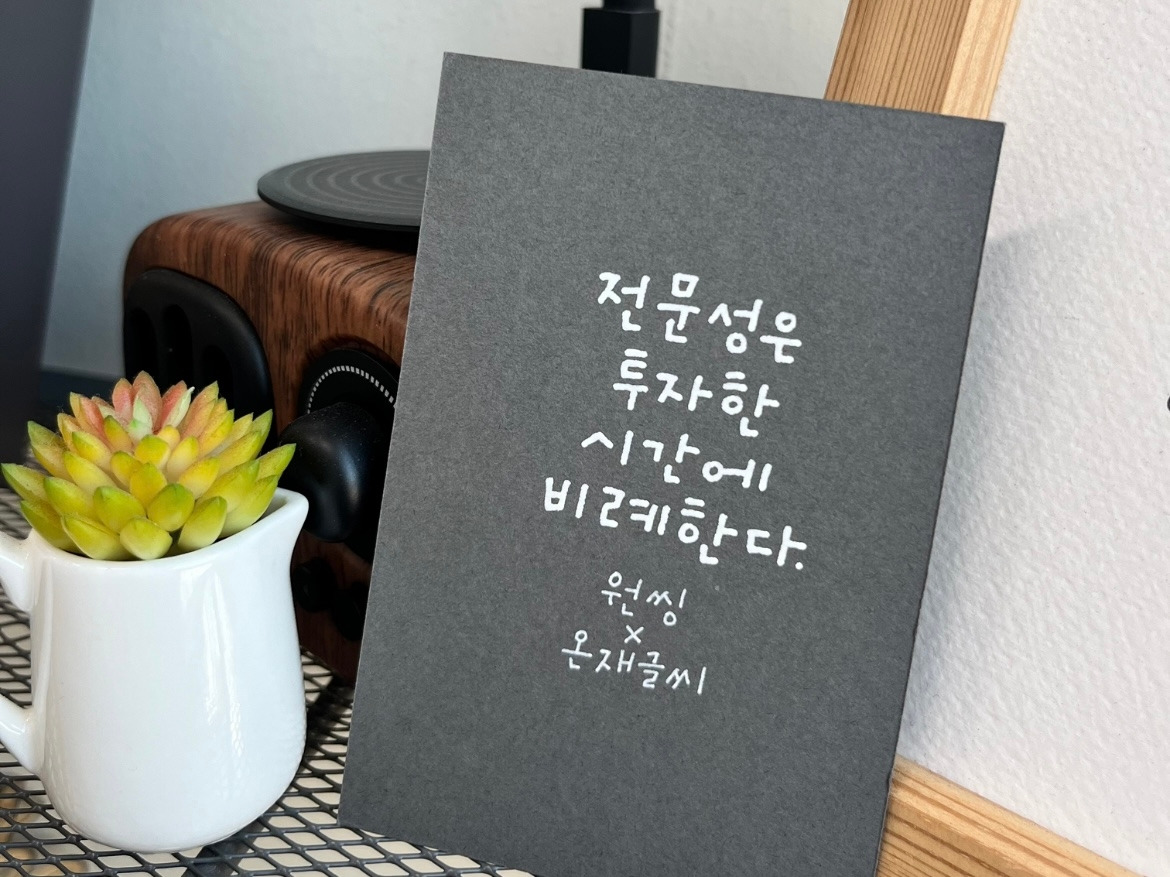 전문성은
투자한
시간에
비례한다.
원씽
×
온재글씨